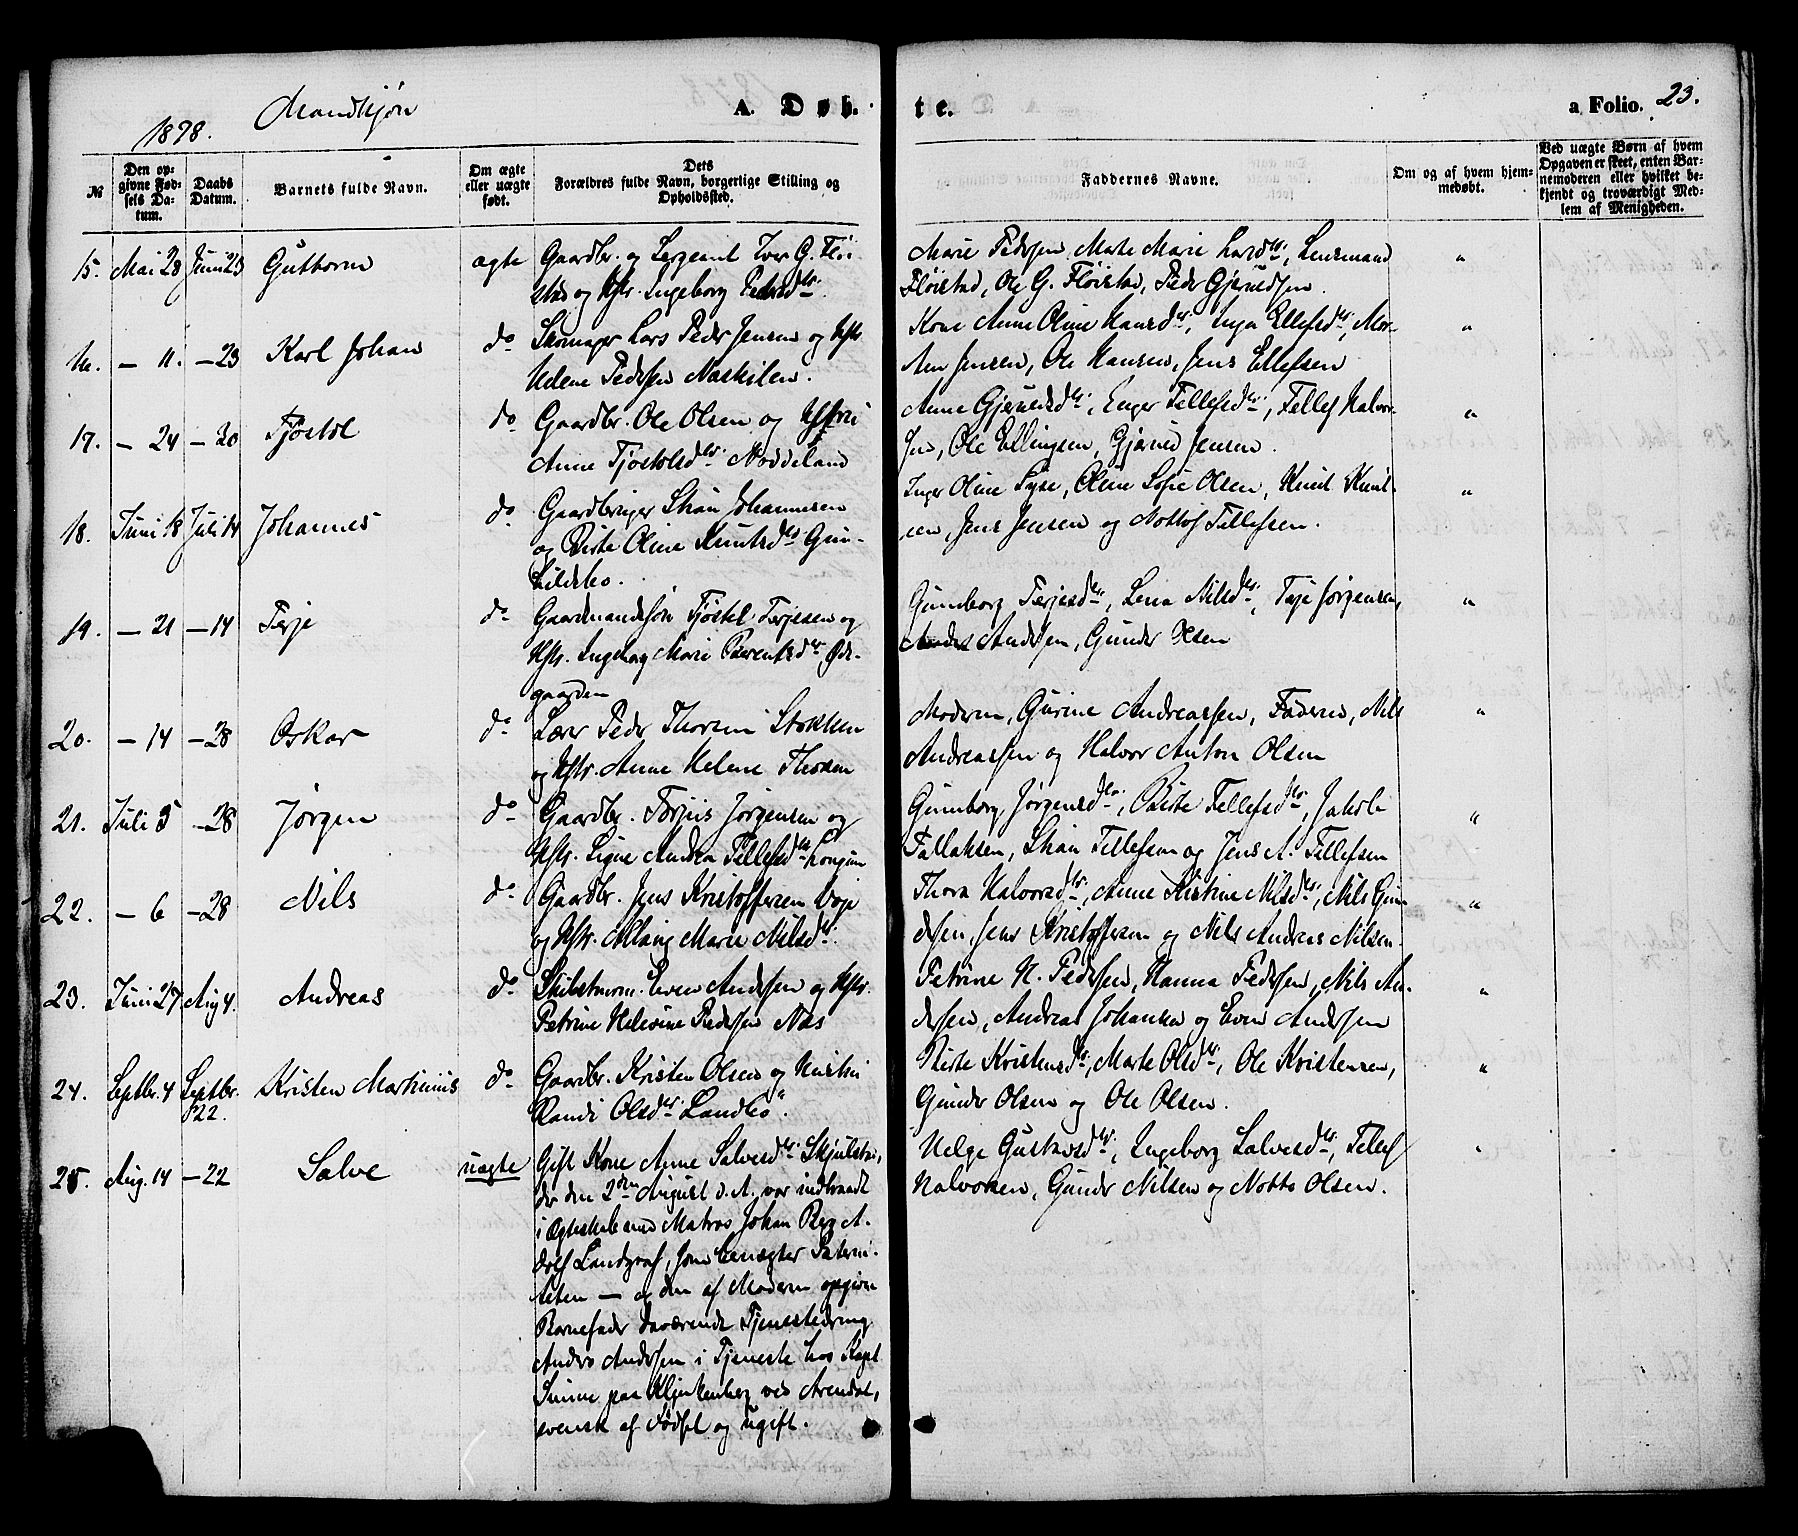 1878. Mandkjøn A. Døb- te. a Folio. 23.
№
Den opgivne Fødsels Datum.
Daabs Datum.
Barnets fulde Navn.
Om ægte eller uægte født.
Dets Forældres fulde Navn, borgerlige Stilling og Opholdssted.
Faddernes Navne.
Om og af hvem hjemmedøbt.
Ved uægte Børn af hvem Opgaven er skeet, enten Barnemoderen eller hvilket bekjendt og troværdigt Medlem af Menigheden.
15. Mai 28 Juni 23 Guttorm ægte Gaardbr. og Sergeant Iver G. Fløi-
stad og Hstr. Ingeborg Pedersdtr.
Marie Pedersen, Marte Marie Larsdtr, Lensmand
Fløistad, Ole G. Fløistad, Peder Gjeruldsen. "
16. — 11. — 23 Karl Johan do Skomager Lars Peder Jensen og Hstr
Helene Pedersen Naskilen.
Kone Anne Oline Hansdtr, Inga Ellefsdtr, Mor-
ten Jensen, Ole Hansen, Jens Ellefsen "
17. — 24 — 30 Tjøstol do Gaardbr. Ole Olsen og Hstru
Anne Tjøstolsdtr Noddeland
Anne Gjeruldsdtr, Enger Tellefsdtr, Tellef Halvor-
sen, Ole Ellingsen, Gjeruld Jensen. "
18. Juni 18 Juli 14 Johannes do Gaardbruger Stian Johannesen
og Birte Oline Knutsdtr Gun-
hildsbo.
Inger Oline Lyse, Oline Sofie Olsen, Knut Knut-
sen, Jens Jensen og Nottof Tellefsen. "
19. — 21 — 14 Terje do Gaardmandssøn Tjøstol Terjesen og
Hstr. Ingeborg Marie Berentsdtr Øde-
gaarden
Gunborg Terjesdtr, Lena Nilsdtr, Terje Jørgensen,
Anders Andersen, Gunder Olsen "
20. — 14 — 28 Oskar do Lærer Peder Thorsen Stokken
og Hstr. Anne Helene Thorsen
Moderen, Gurine Andreassen, Faderen, Nils
Andreassen og Halvor Anton Olsen "
21. Juli 5 — 28 Jørgen do Gaardbr. Torjus Jørgensen og
Hstr. Signe Andrea Tellefsdtr Longum
Gunborg Jørgensdtr, Birte Tellefsdtr, Jakob
Fallaksen, Stian Tellefsen og Jens A. Tellefsen "
22. — 6 — 28 Nils do Gaardbr. Jens Kristoffersen Voje
og Hstr. Aslaug Marie Nilsdtr.
Thora Halvorsdtr, Anne Kistine Nilsdtr, Nils Gun-
dersen, Jens Kristoffersen og Nils Andreas Nilsen. "
23. Juni 27 Aug 4. Andreas do Skibstømm. Even Andersen og Hstr.
Petrine Helevine Pedersen Næs
Petrine N. Pedersen, Hanna Pedersen, Nils An-
dersen, Andreas Johansen og Even Andersen "
24. Septbr. 4 Septbr. 22. Kristen Martinius do Gaardbr. Kristen Olsen og Hustru
Randi Olsdtr Landbø.
Birte Kristensdtr, Marte Olsdtr, Ole Kristensen,
Gunder Olsen og Ole Olsen. "
25. Aug. 14 — 22 Salve uægte Gift Kone Anne Salvesdtr Skjulstad,
der den 2den August d. A. var indtraadt
i Ægteskab med Matros Johan Berg A-
dolf Landgraf, som benægter Paterni-
teten — og den af Moderen opgivne
Barnefader daværende Tjenestedreng
Anders Andersen i Tjeneste hos Kapt
Simme paa Klinkenberg ved Arendal,
svensk af Fødsel og ugift.
Helge Gustavsdtr, Ingeborg Salvesdtr, Tellef
Halvorsen, Gunder Nilsen og Notto Olsen. "